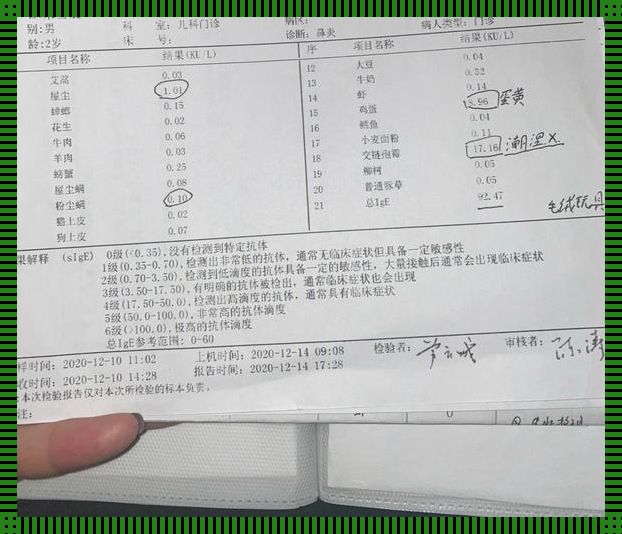 别:男 科 室: 儿科门诊 病区: 病人类型: 门诊
龄:2岁 床 号: 诊断: 鼻炎
项目名称 结果(KU/L) 序 项目名称 结果(KU/L)
艾蒿 0.03 12 大豆 0.04
屋尘 1.01 13 牛奶 0.32
蟑螂 0.15 14 虾 0.14
花生 0.02 15 鸡蛋 8.96 蛋黄
牛肉 0.06 16 鳕鱼 0.04
羊肉 0.03 17 小麦面粉 0.11
螃蟹 0.25 18 交链孢霉 17.16 潮湿X.
屋尘螨 0.08 19 柳树 0.05
粉尘螨 0.10 20 普通豚草 0.05
猫上皮 0.02 21 总IgE 92.47 毛绒玩具
狗上皮 0.07
果解释 (sIgE) 0级(<0.35),没有检测到特定抗体
1级(0.35-0.70),检测出非常低的抗体，通常无临床症状但具备一定敏感性
2级(0.70-3.50),检测到低滴度的抗体具备一定的敏感性，大量接触后通常会出现临床症状
3级(3.50-17.50),有明确的抗体被检出，通常临床症状也会出现
4级(17.50-50.0),检测出高滴度的抗体，通常具有临床症状
5级(50.0-100.0),非常高的抗体滴度
6级(>100.0),极高的抗体滴度
总IgE参考范围: 0-60
样时间: 2020-12-10 11:02 上机时间: 2020-12-14 09:08 检验者: 审核者:
收时间: 2020-12-10 14:28 报告时间: 2020-12-14 17:28
本次检验报告仅对本次所检验的标本负责。
注: